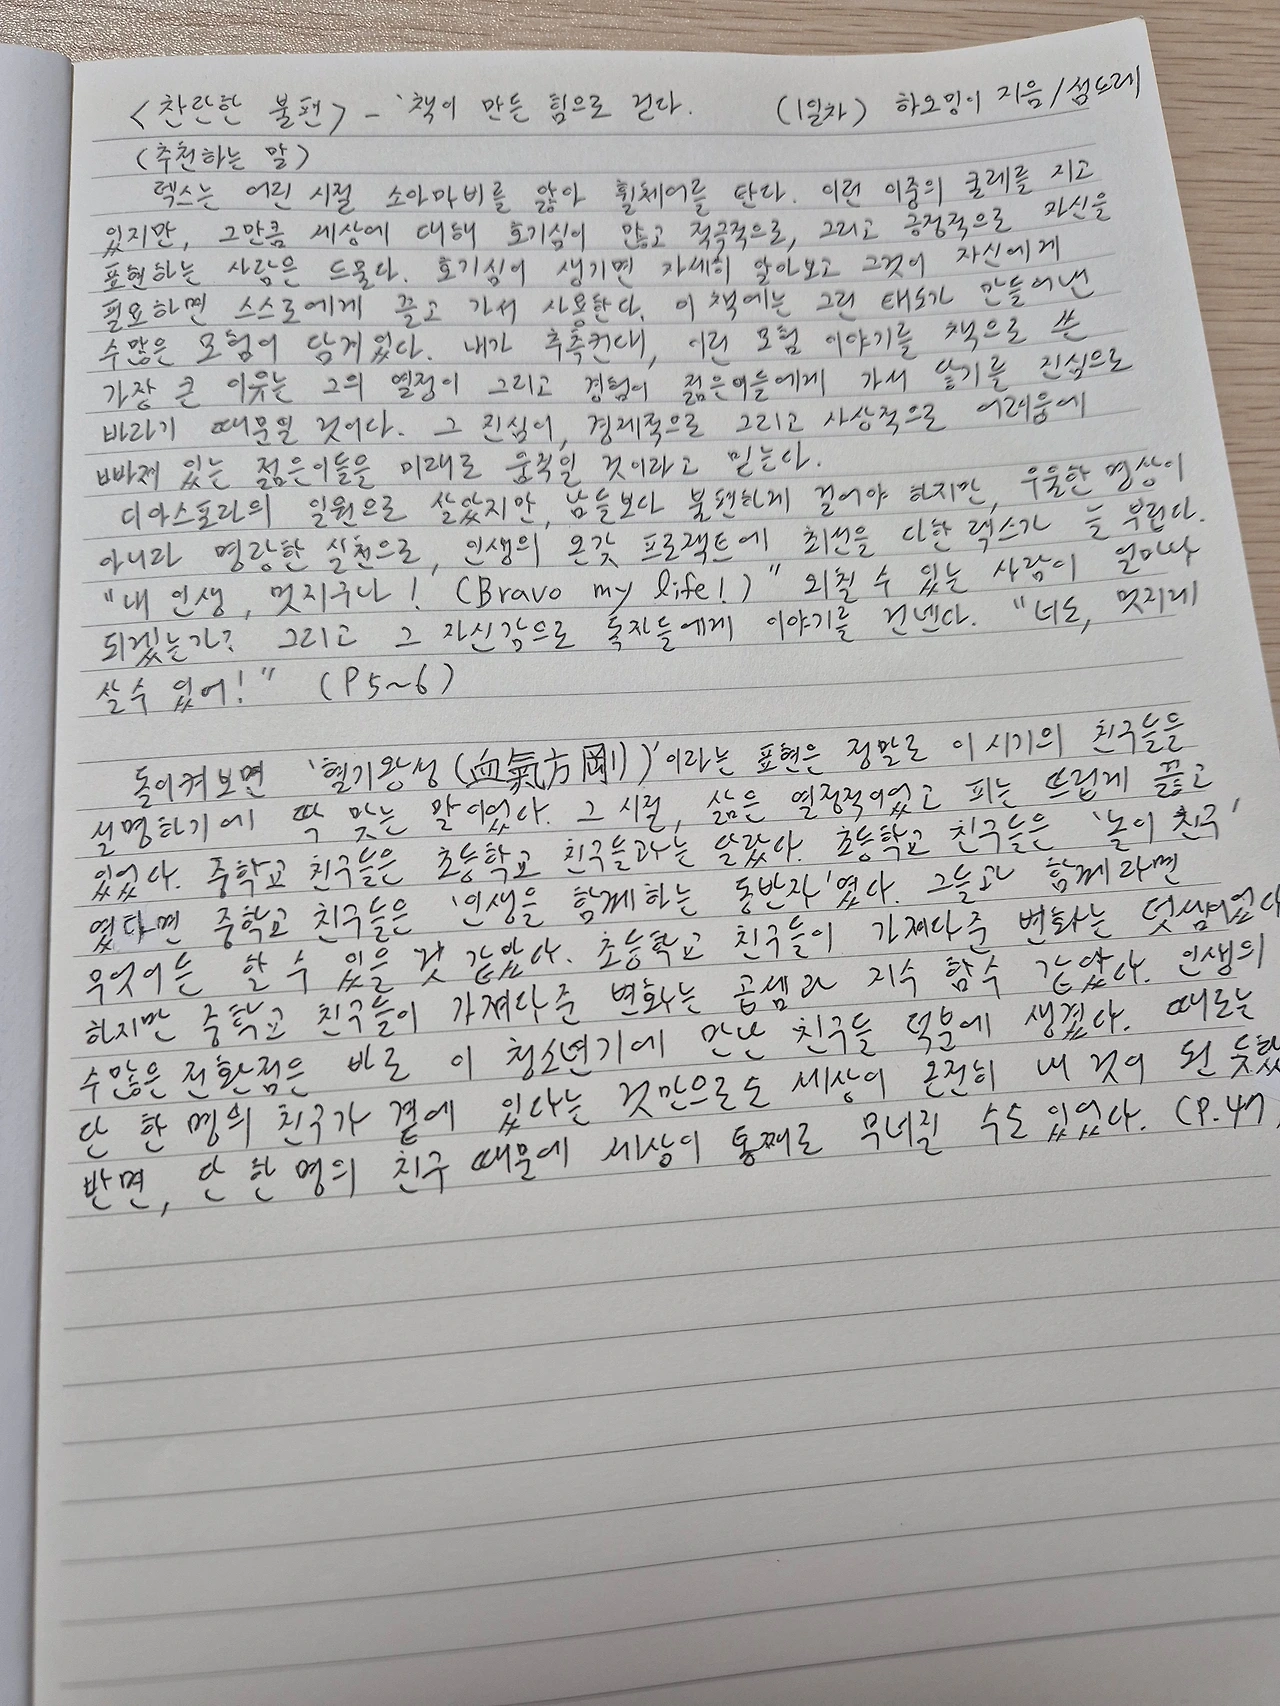 <찬란한 불편> - '책이 만든 힘으로 걷다. (1일차) 하오밍이 지음/섬드레
(추천하는 말)
렉스는 어린 시절 소아마비를 앓아 휠체어를 탄다. 이런 이중의 굴레를 지고
있지만, 그만큼 세상에 대해 호기심이 많고 적극적으로, 그리고 긍정적으로 자신을
표현하는 사람은 드물다. 호기심이 생기면 자세히 알아보고 그것이 자신에게
필요하면 스스로에게 끌고 가서 사용한다. 이 책에는 그런 태도가 만들어낸
수많은 모험이 담겨있다. 내가 추측컨대, 이런 모험 이야기를 책으로 쓴
가장 큰 이유는 그의 열정이 그리고 경험이 젊은이들에게 가서 닿기를 진심으로
바라기 때문일 것이다. 그 진심이, 경제적으로 그리고 사상적으로 어려움에
빠져 있는 젊은이들을 미래로 움직일 것이라고 믿는다.
디아스포라의 일원으로 살았지만, 남들보다 불편하게 걸어야 하지만, 우울한 명상이
아니라 명랑한 실천으로, 인생의 온갖 프로젝트에 최선을 다한 렉스가 늘 부럽다.
"내 인생, 멋지구나! (Bravo my life!)" 외칠 수 있는 사람이 얼마나
되겠는가? 그리고 그 자신감으로 독자들에게 이야기를 건넨다. "너도, 멋지게
살 수 있어!" (P5~6)
돌이켜보면 '혈기왕성(血氣方剛)'이라는 표현은 정말로 이 시기의 친구들을
설명하기에 딱 맞는 말이었다. 그 시절, 삶은 열정적이었고 피는 뜨겁게 끓고
있었다. 중학교 친구들은 초등학교 친구들과는 달랐다. 초등학교 친구들은 '놀이 친구'
였다면 중학교 친구들은 '인생을 함께하는 동반자'였다. 그들과 함께라면
무엇이든 할 수 있을 것 같았다. 초등학교 친구들이 가져다준 변화는 덧셈이었다
하지만 중학교 친구들이 가져다준 변화는 곱셈과 지수 함수 같았다. 인생의
수많은 전환점은 바로 이 청소년기에 만난 친구들 덕분에 생겼다. 때로는
단 한 명의 친구가 곁에 있다는 것만으로도 세상이 온전히 내 것이 된 듯했
반면, 단 한 명의 친구 때문에 세상이 통째로 무너질 수도 있었다. (P.47)